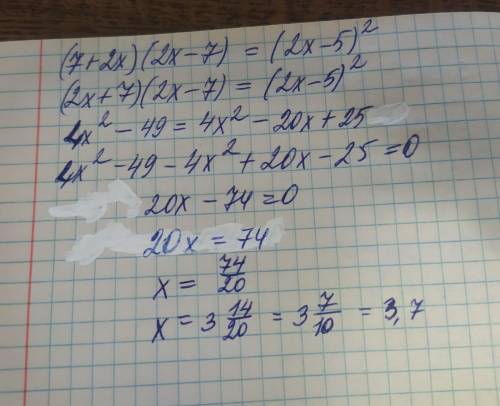 (7+2x)(2x-7) = (2x-5)²
(2x+7)(2x-7) = (2x-5)²
4x² - 49 = 4x² - 20x + 25
4x² - 49 - 4x² + 20x - 25 = 0
20x - 74 = 0
20x = 74
x = 74/20
x = 3 14/20 = 3 7/10 = 3,7